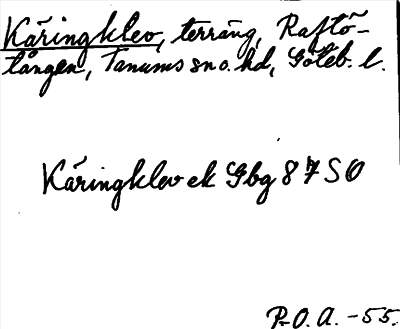 Käringklev, terräng, Raftö-
tången, Tanums sn o. hd, Göteb. l.
Käringklev ek Gbg 87 SO
P-O.A. -55.